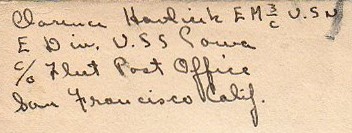 Clarence Havlicik EM 3/c U.S.N
E Div. U.S.S Iowa
c/o Fleet Post Office
San Francisco Calif.